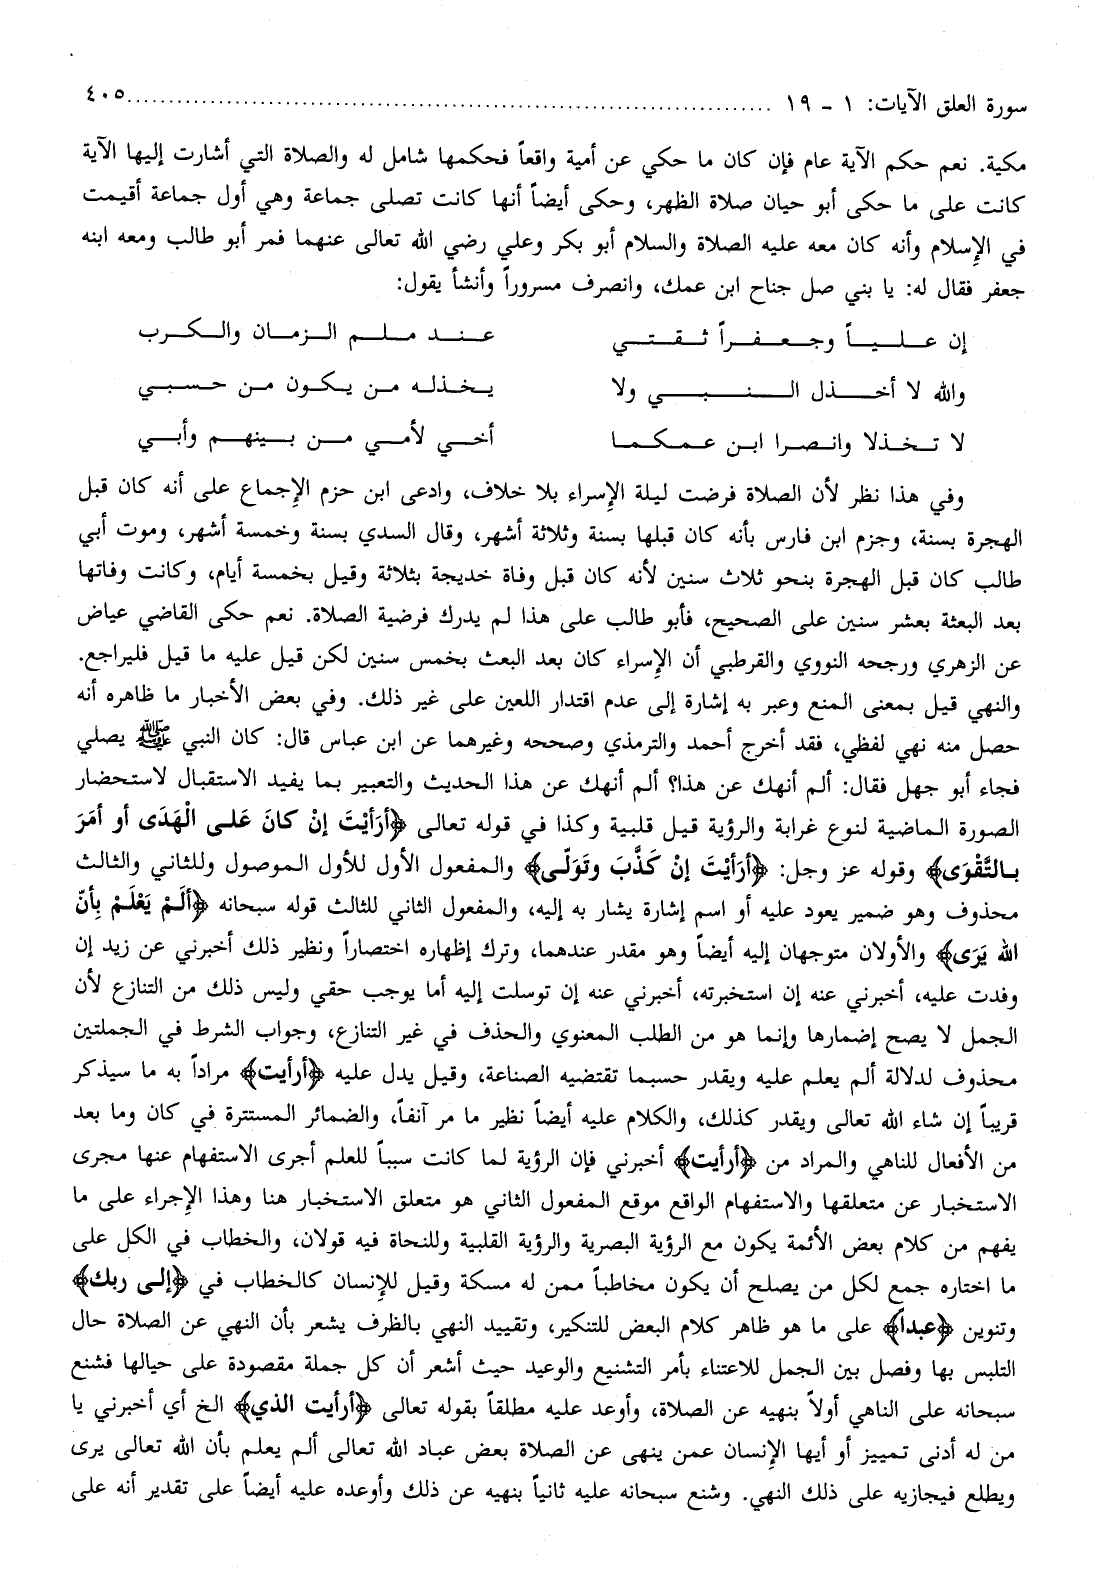 سورة العلق الآيات: ١ - ١٩ ........................................................................ ٤٠٥
مكية. نعم حكم الآية عام فإن كان ما حكي عن أمية واقعاً فحكمها شامل له والصلاة التي أشارت إليها الآية
كانت على ما حكى أبو حيان صلاة الظهر، وحكى أيضاً أنها كانت تصلى جماعة وهي أول جماعة أقيمت
في الإسلام وأنه كان معه عليه الصلاة والسلام أبو بكر وعلي رضي الله تعالى عنهما فمر أبو طالب ومعه ابنه
جعفر فقال له: يا بني صل جناح ابن عمك، وانصرف مسروراً وأنشأ يقول:
إن علـيـاً وجـعـفـراً ثـقـتـي عـنـد مـلـم الـزمـان والـكـرب
والله لا أخـذل الـنـبـي ولا يـخـذلـه مـن يـكـون مـن حـسـبـي
لا تـخـذلا وانـصـرا ابـن عـمـكـمـا أخـي لأمـي مـن بـيـنـهـم وأبـي
وفي هذا نظر لأن الصلاة فرضت ليلة الإسراء بلا خلاف، وادعى ابن حزم الإجماع على أنه كان قبل
الهجرة بسنة، وجزم ابن فارس بأنه كان قبلها بسنة وثلاثة أشهر، وقال السدي بسنة وخمسة أشهر، وموت أبي
طالب كان قبل الهجرة بنحو ثلاث سنين لأنه كان قبل وفاة خديجة بثلاثة وقيل بخمسة أيام، وكانت وفاتها
بعد البعثة بعشر سنين على الصحيح، فأبو طالب على هذا لم يدرك فرضية الصلاة. نعم حكى القاضي عياض
عن الزهري ورجحه النووي والقرطبي أن الإسراء كان بعد البعث بخمس سنين لكن قيل عليه ما قيل فليراجع.
والنهي قيل بمعنى المنع وعبر به إشارة إلى عدم اقتدار اللعين على غير ذلك. وفي بعض الأخبار ما ظاهره أنه
حصل منه نهي لفظي، فقد أخرج أحمد والترمذي وصححه وغيرهما عن ابن عباس قال: كان النبي ﷺ يصلي
فجاء أبو جهل فقال: ألم أنهك عن هذا؟ ألم أنهك عن هذا الحديث والتعبير بما يفيد الاستقبال لاستحضار
الصورة الماضية لنوع غرابة والرؤية قيل قلبية وكذا في قوله تعالى ﴿أرَأيْتَ إنْ كانَ عَلى الْهَدَى أو أمَرَ
بالتَّقْوَى﴾ وقوله عز وجل: ﴿أرَأيْتَ إنْ كَذَّبَ وتَولّى﴾ والمفعول الأول للأول الموصول وللثاني والثالث
محذوف وهو ضمير يعود عليه أو اسم إشارة يشار به إليه، والمفعول الثاني للثالث قوله سبحانه ﴿ألَمْ يَعْلَمْ بِأنّ
الله يَرَى﴾ والأولان متوجهان إليه أيضاً وهو مقدر عندهما، وترك إظهاره اختصاراً ونظير ذلك أخبرني عن زيد إن
وفدت عليه، أخبرني عنه إن استخبرته، أخبرني عنه إن توسلت إليه أما يوجب حقي وليس ذلك من التنازع لأن
الجمل لا يصح إضمارها وإنما هو من الطلب المعنوي والحذف في غير التنازع، وجواب الشرط في الجملتين
محذوف لدلالة ألم يعلم عليه ويقدر حسبما تقتضيه الصناعة، وقيل يدل عليه ﴿أرأيت﴾ مراداً به ما سيذكر
قريباً إن شاء الله تعالى ويقدر كذلك، والكلام عليه أيضاً نظير ما مر آنفاً، والضمائر المستترة في كان وما بعد
من الأفعال للناهي والمراد من ﴿أرأيت﴾ أخبرني فإن الرؤية لما كانت سبباً للعلم أجرى الاستفهام عنها مجرى
الاستخبار عن متعلقها والاستفهام الواقع موقع المفعول الثاني هو متعلق الاستخبار هنا وهذا الإجراء على ما
يفهم من كلام بعض الأئمة يكون مع الرؤية البصرية والرؤية القلبية وللنحاة فيه قولان، والخطاب في الكل على
ما اختاره جمع لكل من يصلح أن يكون مخاطباً ممن له مسكة وقيل للإنسان كالخطاب في ﴿إلى ربك﴾
وتنوين ﴿عبداً﴾ على ما هو ظاهر كلام البعض للتنكير، وتقييد النهي بالظرف يشعر بأن النهي عن الصلاة حال
التلبس بها وفصل بين الجمل للاعتناء بأمر التشنيع والوعيد حيث أشعر أن كل جملة مقصودة على حيالها فشنع
سبحانه على الناهي أولاً بنهيه عن الصلاة، وأوعد عليه مطلقاً بقوله تعالى ﴿أرأيت الذي﴾ الخ أي أخبرني يا
من له أدنى تمييز أو أيها الإنسان عمن ينهى عن الصلاة بعض عباد الله تعالى ألم يعلم بأن الله تعالى يرى
ويطلع فيجازيه على ذلك النهي. وشنع سبحانه عليه ثانياً بنهيه عن ذلك وأوعده عليه أيضاً على تقدير أنه على